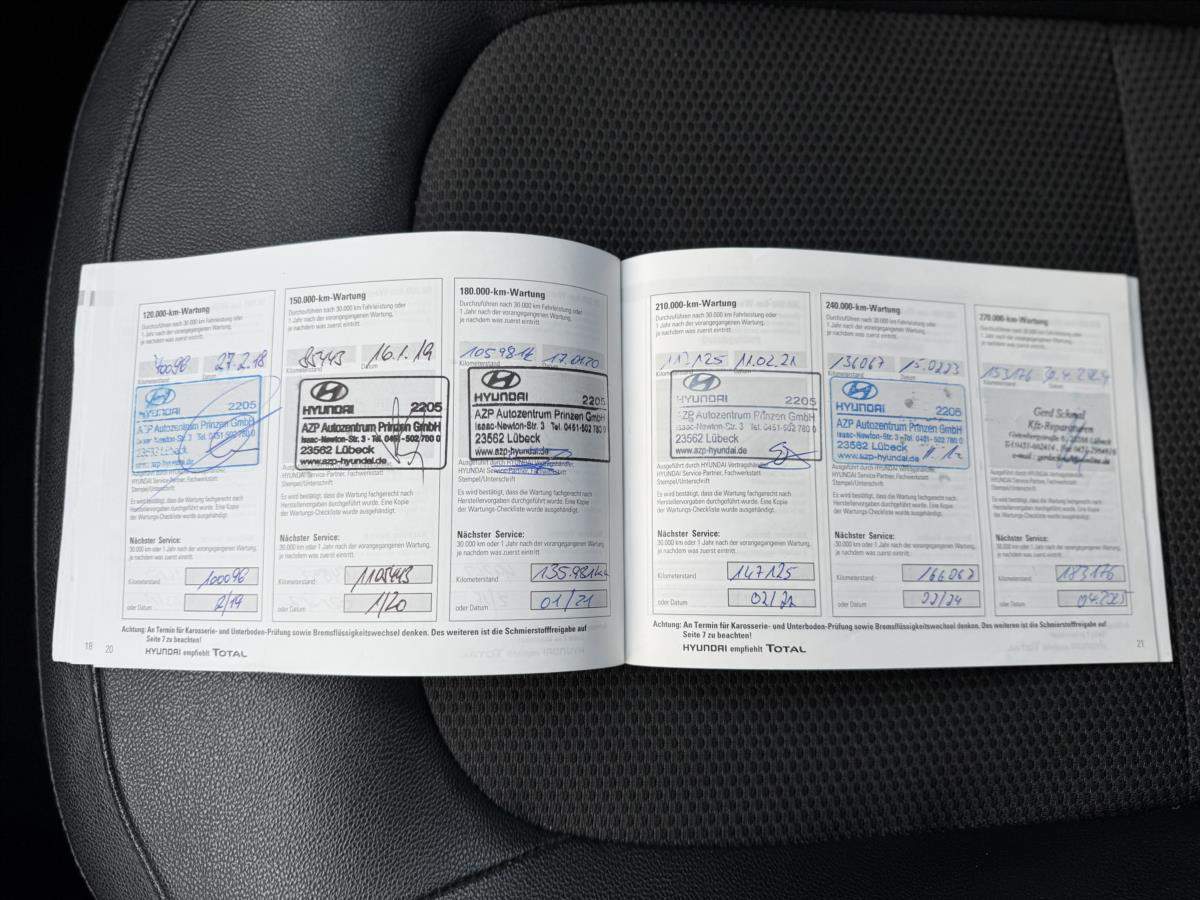 120.000-km-Wartung
Durchzuführen nach 30.000 km Fahrleistung oder
1 Jahr nach der vorangegangenen Wartung,
je nachdem was zuerst eintritt.
70096 27.2.18
Kilometerstand Datum
HYUNDAI 2205
AZP Autozentrum Prinzen GmbH
Isaac-Newton-Str. 3 Tel. 0451-502 780 0
23562 Lübeck
www.azp-hyundai.de
HYUNDAI Service-Partner, Fachwerkstatt
Stempel/Unterschrift
Es wird bestätigt, dass die Wartung fachgerecht nach
Herstellervorgaben durchgeführt wurde. Eine Kopie
der Wartungs-Checkliste wurde ausgehändigt.
Nächster Service:
30.000 km oder 1 Jahr nach der vorangegangenen Wartung,
je nachdem was zuerst eintritt.
Kilometerstand 100096
oder Datum 2/19
150.000-km-Wartung
Durchzuführen nach 30.000 km Fahrleistung oder
1 Jahr nach der vorangegangenen Wartung,
je nachdem was zuerst eintritt.
85443 16.1.19
Kilometerstand Datum
HYUNDAI 2205
AZP Autozentrum Prinzen GmbH
Isaac-Newton-Str. 3 - Tel. 0451 - 502 780 0
23562 Lübeck
www.azp-hyundai.de
HYUNDAI Service-Partner, Fachwerkstatt
Stempel/Unterschrift
Es wird bestätigt, dass die Wartung fachgerecht nach
Herstellervorgaben durchgeführt wurde. Eine Kopie
der Wartungs-Checkliste wurde ausgehändigt.
Nächster Service:
30.000 km oder 1 Jahr nach der vorangegangenen Wartung,
je nachdem was zuerst eintritt.
Kilometerstand 1105443
oder Datum 1/20
180.000-km-Wartung
Durchzuführen nach 30.000 km Fahrleistung oder
1 Jahr nach der vorangegangenen Wartung,
je nachdem was zuerst eintritt.
105981k 17.01.20
Kilometerstand
HYUNDAI 2205
AZP Autozentrum Prinzen GmbH
Isaac-Newton-Str. 3 Tel. 0451-502 780 0
23562 Lübeck
www.azp-hyundai.de
Ausgeführt durch HYUNDAI Vertragshändler,
HYUNDAI Service-Partner, Fachwerkstatt
Stempel/Unterschrift
Es wird bestätigt, dass die Wartung fachgerecht nach
Herstellervorgaben durchgeführt wurde. Eine Kopie
der Wartungs-Checkliste wurde ausgehändigt.
Nächster Service:
30.000 km oder 1 Jahr nach der vorangegangenen Wartung,
je nachdem was zuerst eintritt.
Kilometerstand 135.981
oder Datum 01/21
Achtung: An Termin für Karosserie- und Unterboden-Prüfung sowie Bremsflüssigkeitswechsel denken. Des weiteren ist die Schmierstofffreigabe auf
Seite 7 zu beachten!
18 20 HYUNDAI empfiehlt TOTAL
210.000-km-Wartung
Durchzuführen nach 30.000 km Fahrleistung oder
1 Jahr nach der vorangegangenen Wartung,
je nachdem was zuerst eintritt.
117125 11.02.21
Kilometerstand
HYUNDAI 2205
AZP Autozentrum Prinzen GmbH
Isaac-Newton-Str. 3 Tel. 0451-502 780 0
23562 Lübeck
www.azp-hyundai.de
Ausgeführt durch HYUNDAI Vertragshändler,
HYUNDAI Service-Partner, Fachwerkstatt
Stempel/Unterschrift
Es wird bestätigt, dass die Wartung fachgerecht nach
Herstellervorgaben durchgeführt wurde. Eine Kopie
der Wartungs-Checkliste wurde ausgehändigt.
Nächster Service:
30.000 km oder 1 Jahr nach der vorangegangenen Wartung,
je nachdem was zuerst eintritt.
Kilometerstand 147125
oder Datum 02/22
240.000-km-Wartung
Durchzuführen nach 30.000 km Fahrleistung oder
1 Jahr nach der vorangegangenen Wartung,
je nachdem was zuerst eintritt.
136067
Kilometerstand Datum
HYUNDAI 2205
AZP Autozentrum Prinzen GmbH
Isaac-Newton-Str. 3 - Tel. 0451-502 780 0
23562 Lübeck
www.azp-hyundai.de
Ausgeführt durch HYUNDAI Vertragshändler,
HYUNDAI Service-Partner, Fachwerkstatt
Stempel/Unterschrift
Es wird bestätigt, dass die Wartung fachgerecht nach
Herstellervorgaben durchgeführt wurde. Eine Kopie
der Wartungs-Checkliste wurde ausgehändigt.
Nächster Service:
30.000 km oder 1 Jahr nach der vorangegangenen Wartung,
je nachdem was zuerst eintritt.
Kilometerstand 166067
oder Datum 22/24
270.000-km-Wartung
Durchzuführen nach 30.000 km Fahrleistung oder
1 Jahr nach der vorangegangenen Wartung,
je nachdem was zuerst eintritt.
153176
Kilometerstand Datum
Gerd Schmal
Kfz-Reparaturen
HYUNDAI Service-Partner, Fachwerkstatt
Stempel/Unterschrift
Es wird bestätigt, dass die Wartung fachgerecht nach
Herstellervorgaben durchgeführt wurde. Eine Kopie
der Wartungs-Checkliste wurde ausgehändigt.
Nächster Service:
30.000 km oder 1 Jahr nach der vorangegangenen Wartung,
je nachdem was zuerst eintritt.
Kilometerstand 183176
oder Datum 04.2025
Achtung: An Termin für Karosserie- und Unterboden-Prüfung sowie Bremsflüssigkeitswechsel denken. Des weiteren ist die Schmierstofffreigabe auf
Seite 7 zu beachten!
HYUNDAI empfiehlt TOTAL 21